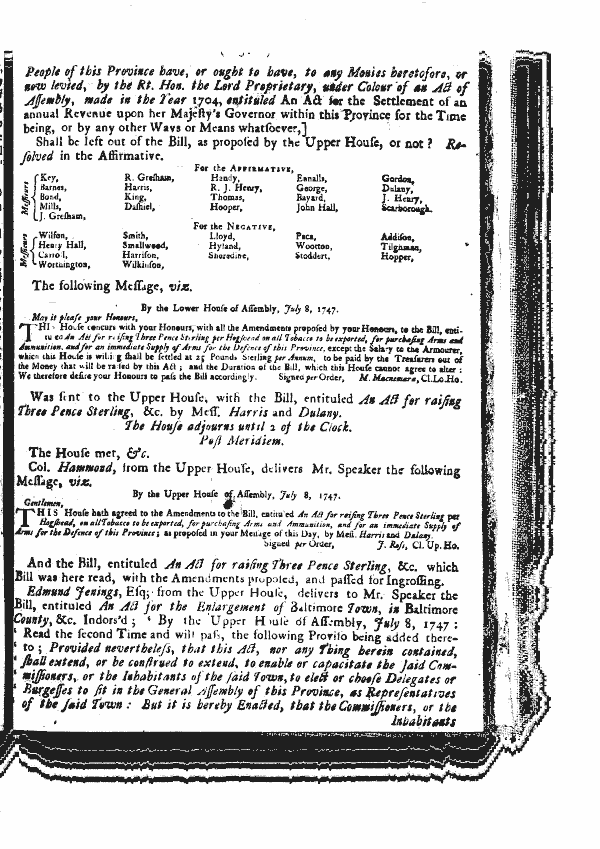 People of this Province have, or ought to have, to any Monies heretofore, or
now levied, by the Rt. Hon. the Lord Proprietary, under Colour of an Act of
Aſſembly, made in the Year 1704, entituled An Act for the Settlement of an
annual Revenue upon her Majeſty's Governor within this Province for the Time
being, or by any other Ways or Means whatſoever,]
Shall be left out of the Bill, as propoſed by the Upper Houſe, or not? Re-
ſolved in the Affirmative.
For the AFFIRMATIVE,
Meſſieurs
Key, R. Greſham, Handy, Ennalls, Gordon,
Barnes, Harris, R. J. Henry, George, Dulany,
Bond, King, Thomas, Bayard, J. Henry,
Mills, Daſhiel, Hooper, John Hall, Scarborough.
J. Greſham,
For the NEGATIVE,
Meſſieurs
Wilſon, Smith, Lloyd, Paca, Addiſon,
Henry Hall, Smallwood, Hyland, Wootton, Tilghman,
Carroll, Harriſon, Sheredine, Stoddert, Hopper,
Worthington, Wilkinſon,
The following Meſſage, viz.
By the Lower Houſe of Aſſembly, July 8, 1747.
May it pleaſe your Honours,
THIS Houſe concurs with your Honours, with all the Amendments propoſed by your Honours, to the Bill, enti-
tu ed An Act for raiſing Three Pence Sterling per Hogſhead on all Tobacco to be exported, for purchaſing Arms and
Ammunition, and for an immediate Supply of Arms for the Defence of this Province, except the Salary to the Armourer,
which this Houſe is willing ſhall be ſettled at 25 Pounds Sterling per Annum, to be paid by the Treaſurers out of
the Money that will be raiſed by this Act; and the Duration of the Bill, which this Houſe cannot agree to alter:
We therefore deſire your Honours to paſs the Bill accordingly. Signed per Order, M. Macnemara, Cl. Lo. Ho.
Was ſent to the Upper Houſe, with the Bill, entituled An Act for raiſing
Three Pence Sterling, &c. by Meſſ. Harris and Dulany.
The Houſe adjourns until 2 of the Clock.
Poſt Meridiem.
The Houſe met, &c.
Col. Hammond, from the Upper Houſe, delivers Mr. Speaker the following
Meſſage, viz.
By the Upper Houſe of Aſſembly, July 8, 1747.
Gentlemen,
THIS Houſe hath agreed to the Amendments to the Bill, entituled An Act for raiſing Three Pence Sterling per
Hogſhead, on all Tobacco to be exported, for purchaſing Arms and Ammunition, and for an immediate Supply of
Arms for the Defence of this Province; as propoſed in your Meſſage of this Day, by Meſſ. Harris and Dulany.
Signed per Order, J. Roſs, Cl. Up. Ho.
And the Bill, entituled An Act for raiſing Three Pence Sterling, &c. which
Bill was here read, with the Amendments propoſed, and paſſed for Ingroſſing.
Edmund Jenings, Eſq; from the Upper Houſe, delivers to Mr. Speaker the
Bill, entituled An Act for the Enlargement of Baltimore Town, in Baltimore
County, &c. Indors'd; ' By the Upper Houſe of Aſſembly, July 8, 1747:
' Read the ſecond Time and will paſs, the following Proviſo being added there-
' to; Provided nevertheleſs, that this Act, nor any Thing herein contained,
' ſhall extend, or be conſtrued to extend, to enable or capacitate the ſaid Com-
' miſſioners, or the Inhabitants of the ſaid Town, to elect or chooſe Delegates or
' Burgeſſes to ſit in the General Aſſembly of this Province, as Repreſentatives
' of the ſaid Town: But it is hereby Enacted, that the Commiſſioners, or the
Inhabitants